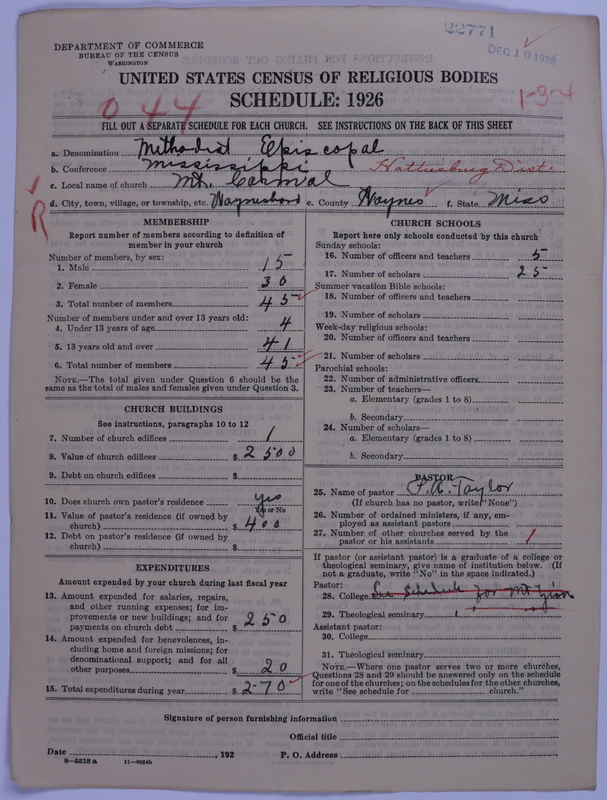 22771
DEC 10 1926
DEPARTMENT OF COMMERCE
BUREAU OF THE CENSUS
WASHINGTON
UNITED STATES CENSUS OF RELIGIOUS BODIES
SCHEDULE: 1926
044
1-3-4
FILL OUT A SEPARATE SCHEDULE FOR EACH CHURCH. SEE INSTRUCTIONS ON THE BACK OF THIS SHEET
a. Denomination Methodist Episcopal
b. Conference Mississippi Hattiesburg Dist.
c. Local name of church Mt. Carmal
d. City, town, village, or township, etc. Waynesboro e. County Wayne f. State Miss
R
MEMBERSHIP
Report number of members according to definition of
member in your church
Number of members, by sex:
1. Male 15
2. Female 30
3. Total number of members 45
Number of members under and over 13 years old:
4. Under 13 years of age 4
5. 13 years old and over 41
6. Total number of members 45
NOTE.—The total given under Question 6 should be the
same as the total of males and females given under Question 3.
CHURCH BUILDINGS
See instructions, paragraphs 10 to 12
7. Number of church edifices 1
8. Value of church edifices $ 2500
9. Debt on church edifices $
10. Does church own pastor's residence yes
Yes or No
11. Value of pastor's residence (if owned by
church) $ 400
12. Debt on pastor's residence (if owned by
church) $
EXPENDITURES
Amount expended by your church during last fiscal year
13. Amount expended for salaries, repairs,
and other running expenses; for im-
provements or new buildings; and for
payments on church debt $ 250
14. Amount expended for benevolences, in-
cluding home and foreign missions; for
denominational support; and for all
other purposes $ 20
15. Total expenditures during year $ 270
CHURCH SCHOOLS
Report here only schools conducted by this church
Sunday schools:
16. Number of officers and teachers 5
17. Number of scholars 25
Summer vacation Bible schools:
18. Number of officers and teachers
19. Number of scholars
Week-day religious schools:
20. Number of officers and teachers
21. Number of scholars
Parochial schools:
22. Number of administrative officers
23. Number of teachers—
a. Elementary (grades 1 to 8)
b. Secondary
24. Number of scholars—
a. Elementary (grades 1 to 8)
b. Secondary
PASTOR
25. Name of pastor P.A. Taylor
(If church has no pastor, write "None")
26. Number of ordained ministers, if any, em-
ployed as assistant pastors
27. Number of other churches served by the
pastor or his assistants 1
If pastor (or assistant pastor) is a graduate of a college or
theological seminary, give name of institution below. (If
not a graduate, write "No" in the space indicated.)
Pastor:
28. College See Schedule for Mt Zion
29. Theological seminary
Assistant pastor:
30. College
31. Theological seminary
NOTE.—Where one pastor serves two or more churches,
Questions 28 and 29 should be answered only on the schedule
for one of the churches; on the schedules for the other churches,
write "See schedule for church."
Signature of person furnishing information
Official title
Date , 192 P. O. Address
8—5518 a 11—9684b